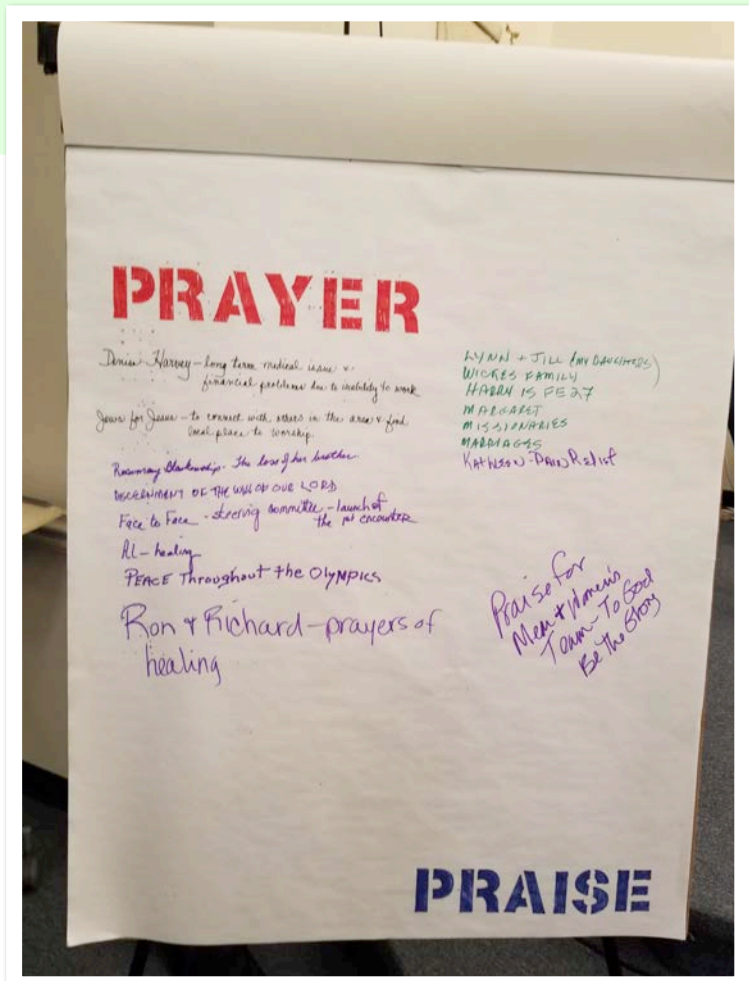 PRAYER
Denise Harvey - long term medical issue &
financial problems due to inability to work
Jews for Jesus - to connect with others in the area & find
local place to worship.
Rosemary Blankenship - The loss of her brother
DISCERNMENT OF THE WILL OF OUR LORD
Face to Face - steering committee - launch of
the 1st encounter
AL - healing
PEACE Throughout the OLYMPICS
Ron & Richard - prayers of
healing
LYNN + JILL (MY DAUGHTERS)
WICKES FAMILY
HARRY IS FE 27
MARGARET
MISSIONARIES
MARRIAGES
KATHLEEN - PAIN RELIEF
Praise for
Men & Women's
Team - To God
Be The Glory
PRAISE